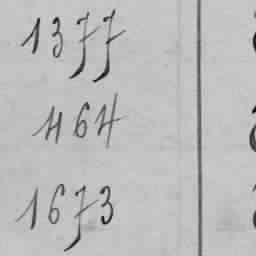 1377
464
1673